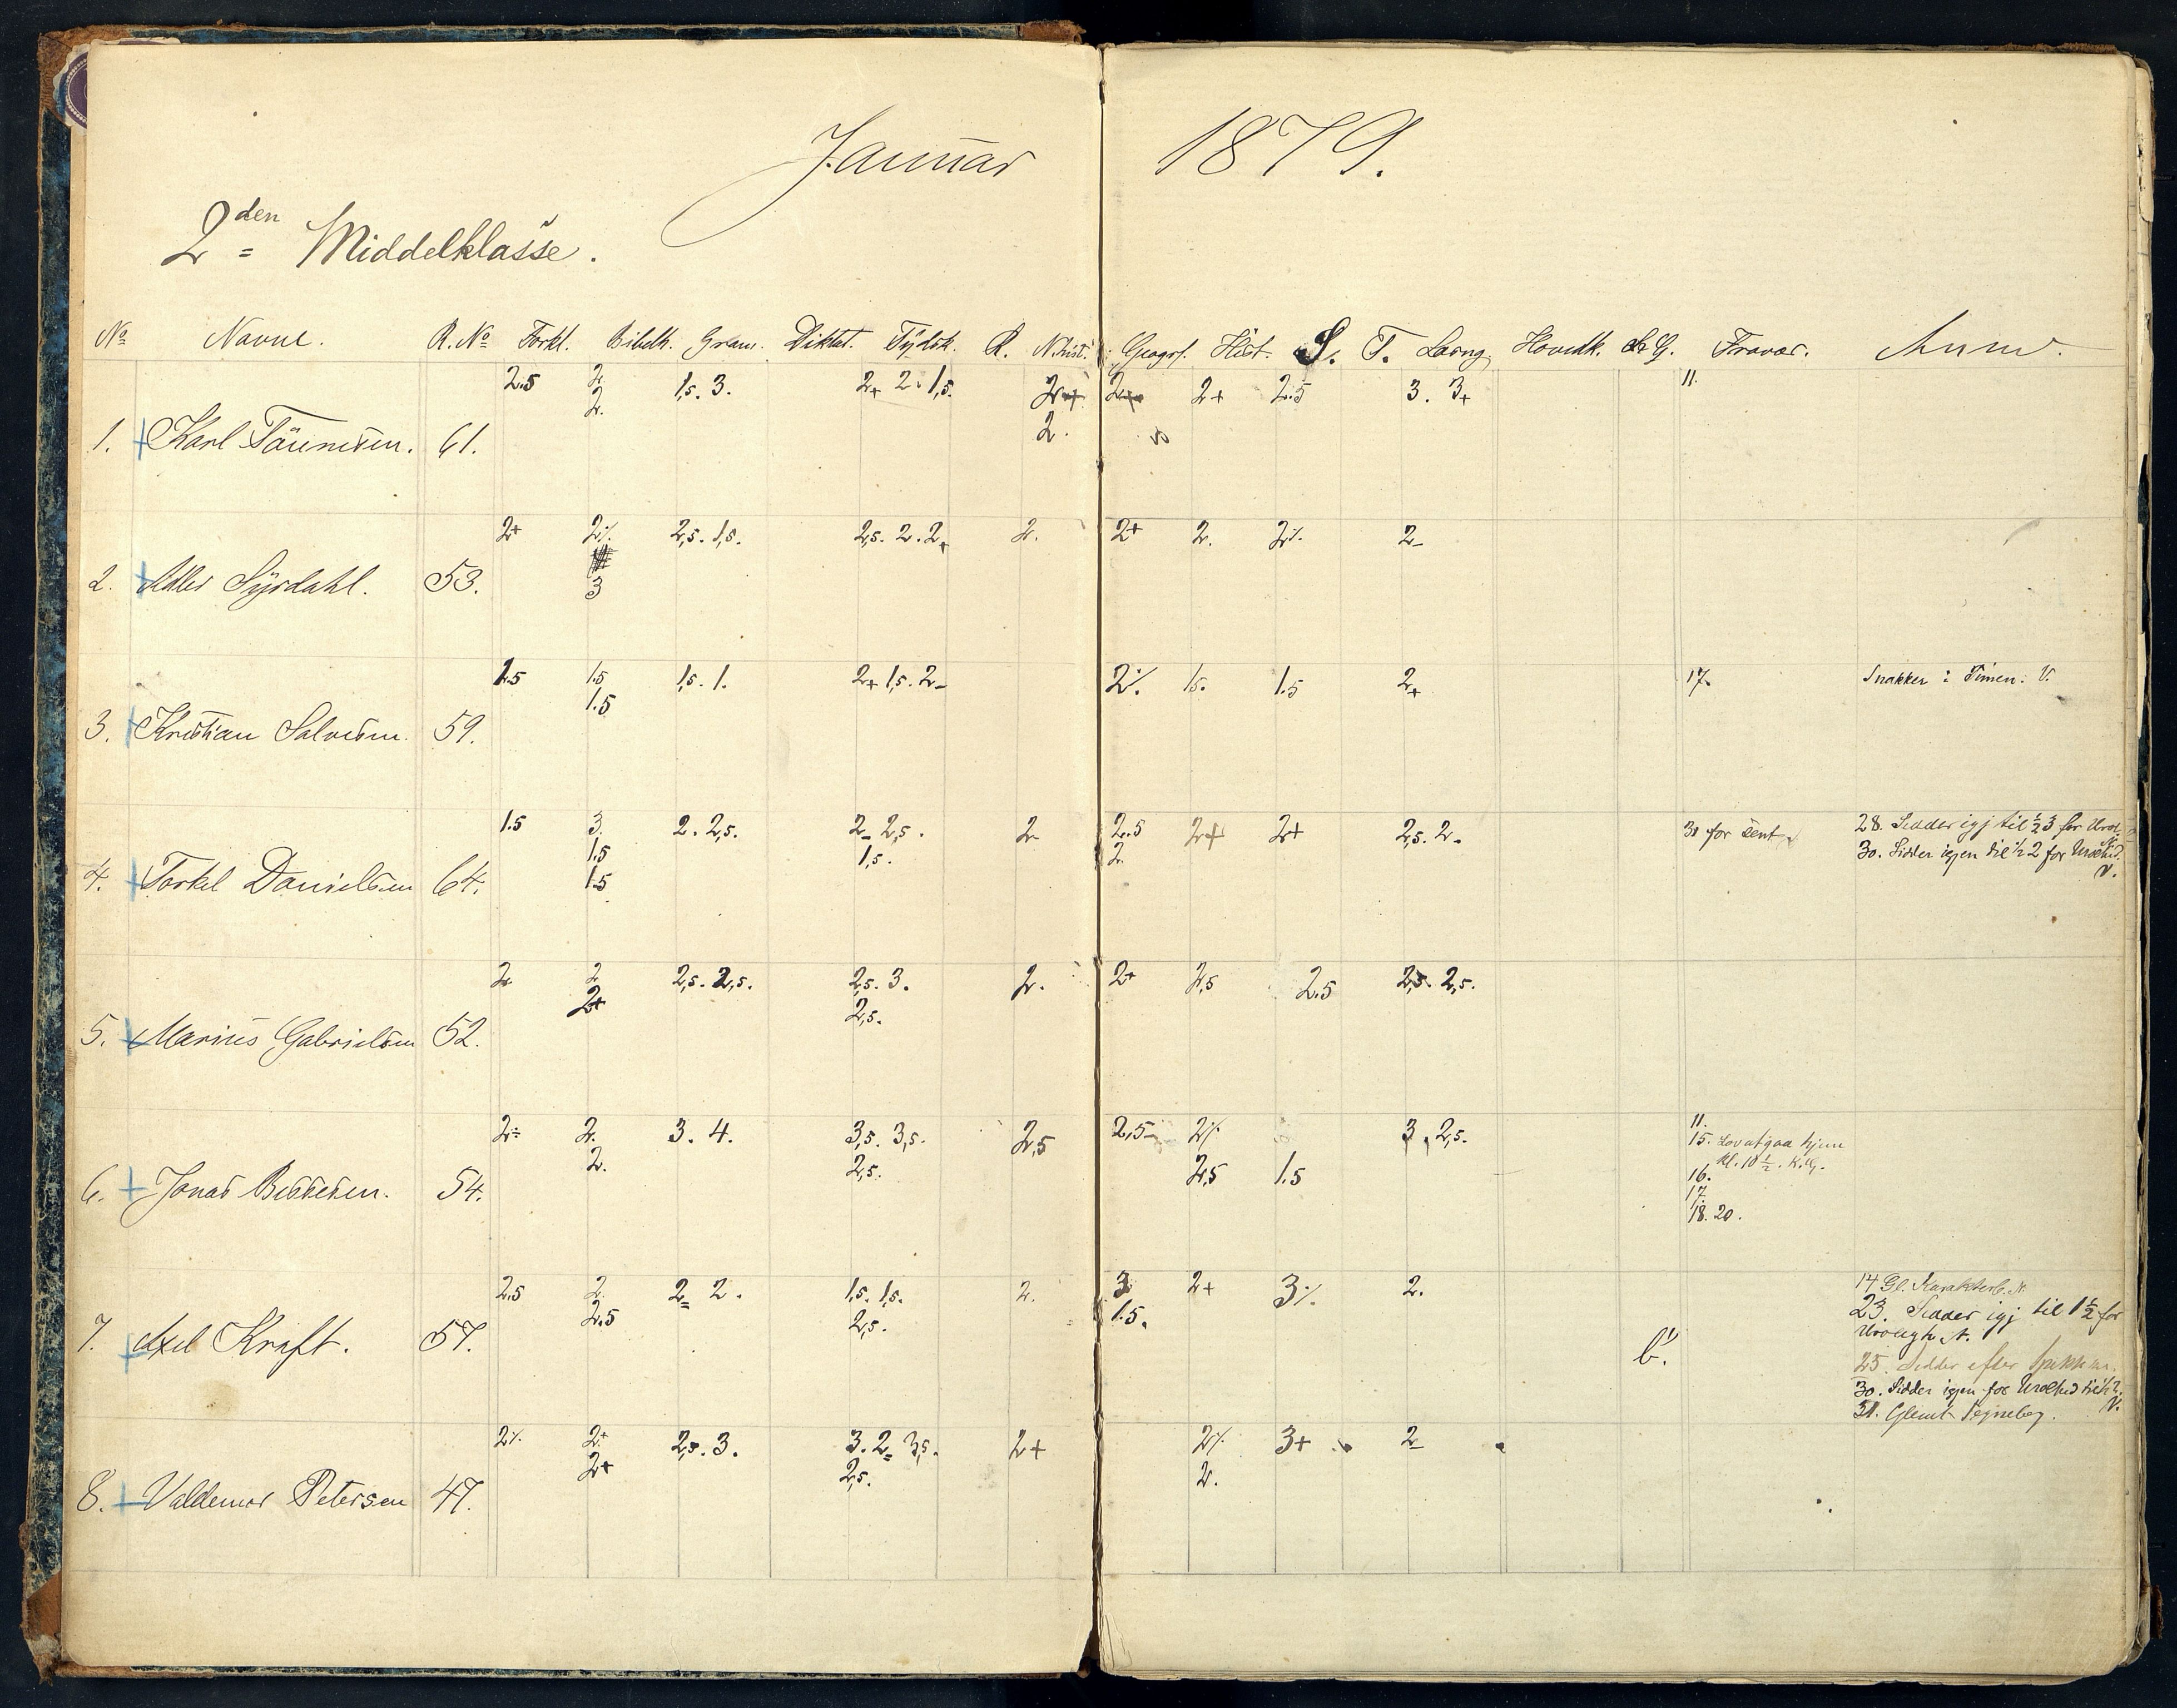 Januar 1879.
2den Middelklasse.
No Navne. R. No Forkl. Bibelh. Gram. Diktat. Tÿdsk. R. N.hist. Geogrf. Hist. S. T. Læsng Hovedk. O. G. Fravær. Anm.
2.5 2. 1,5. 3. 2+ 2. 1,5. 2+ 2+ 2+ 2.5 3. 3+ 11.
2. 2.
1. Karl Tönnesen. 61.
2+ 2%. 2,5. 1,5. 2,5. 2. 2+ 2. 2+ 2. 2%. 2-
3
2. Adler Sÿrdahl. 53.
1.5 1.5 1,5. 1. 2+ 1,5. 2- 2%. 1,5. 1.5 2+ 17. Snakker i Timen. V.
1.5
3. Kristian Salvesen. 59.
1.5 3. 2. 2,5. 2- 2,5. 2- 2.5 2+ 2+ 2,5. 2. 30 for sent 28. Sidder igj til ½3 for Urol.
1.5 1,5. 2. 30. Sidder igjen til ½2 for Urolhed.
1.5 V.
4. Torkel Danielsen 64.
2 2. 2,5. 2,5. 2,5. 3. 2. 2+ 2,5 2.5 2,5. 2,5.
2+ 2,5.
5. Marius Gabrielsen 52.
2÷ 2. 3. 4. 3,5. 3,5. 2,5 2,5- 2% 3. 2,5. 11.
2. 2,5. 2,5 1.5 15. Lov at gaa hjem
kl. 10½. K.G.
16.
17.
18. 20.
6. Jonas Berresen. 54.
2.5 2. 2= 2. 1,5. 1,5. 2. 3 2+ 3%. 2. 14 Gl. Karakterb. N.
2.5 2,5. 1.5. 23. Sidder igj til 1½ for
Uroligh. N.
7. Axel Kraft. 57. b". 25. Sidder efter
30. Sidder igjen for Urolhed til ½2.
V.
31. Glemt Tegnebog.
2%. 2+ 2,5. 3. 3. 2= 3,5. 2+ 2% 3+ 2-
2+ 2,5. 2.
8. Valdemar Petersen 47.